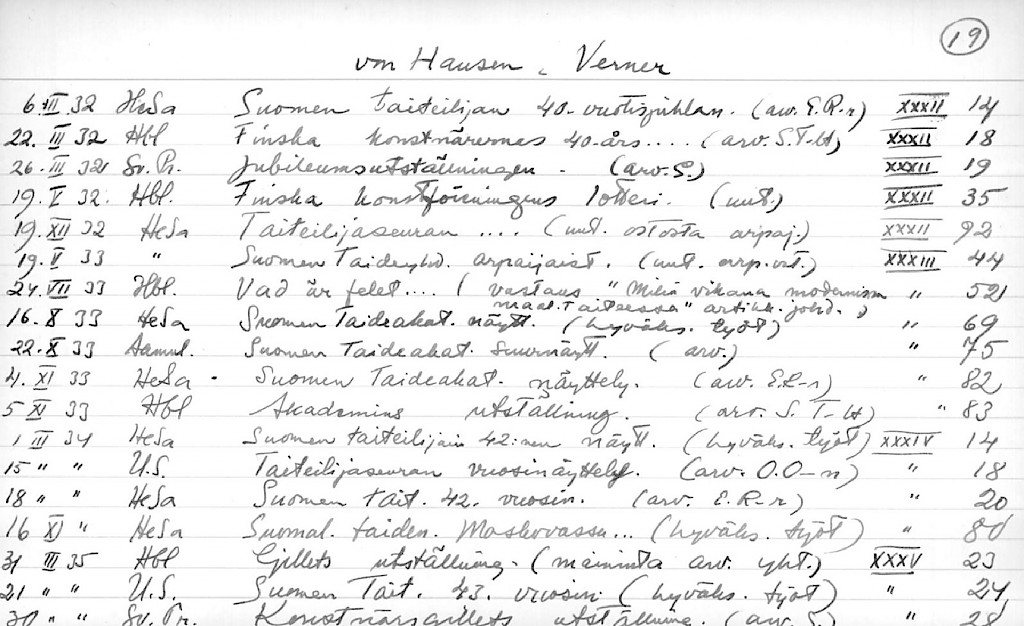 19
von Hausen, Verner
6. III 32 HeSa Suomen taiteilijan 40-vuotisjuhlan. (arv. E.R-r) XXXII 14
22. III 32 Hbl Finska konstnärernes 40-års.... (arv. S.T-H) XXXII 18
26. III 32 Sv. Pr. Jubileumsutställningen. (arv. S.) XXXII 19
19. V 32. Hbl. Finska konstföreningens lotteri. (uut.) XXXII 35
19. XII 32 HeSa Taiteilijaseuran .... (uut. ostosta arpaj.) XXXII 92
19. V 33 " Suomen Taideyhd. arpaijaist. (uut. arp. ost.) XXXIII 44
24. VII 33 Hbl. Vad är felet.... ( vastaus "Mikä vikana modernissa " 52
maal. taiteessa" artikk. johd. )
16. X 33 HeSa Suomen Taideakat. näytt. (hyväks. työt) " 69
22. X 33 Aamul. Suomen Taideakat. suurnäytt. (arv.) " 75
4. XI 33 HeSa. Suomen Taideakat. näyttely. (arv. E.R-r) " 82
5 XI 33 Hbl Akademins utställning. (arv. S.T-H) " 83
1 III 34 HeSa Suomen taiteilijain 42:nen näytt. (hyväks. työt) XXXIV 14
15 " " U.S. Taiteilijaseuran vuosinäyttely. (arv. O.O-n) " 18
18 " " HeSa Suomen tait. 42. vuosin. (arv. E.R-r) " 20
16 XI " HeSa Suomal. taiden. Moskovassa... (hyväks. työt) " 80
31 III 35 Hbl Gillets utställning. (maininta arv. yht.) XXXV 23
21 " " U.S. Suomen Tait. 43. vuosin (hyväks. työt) " 24
30 " " Sv. Pr. Konstnärsgillets utställning. (arv. S.) " 28